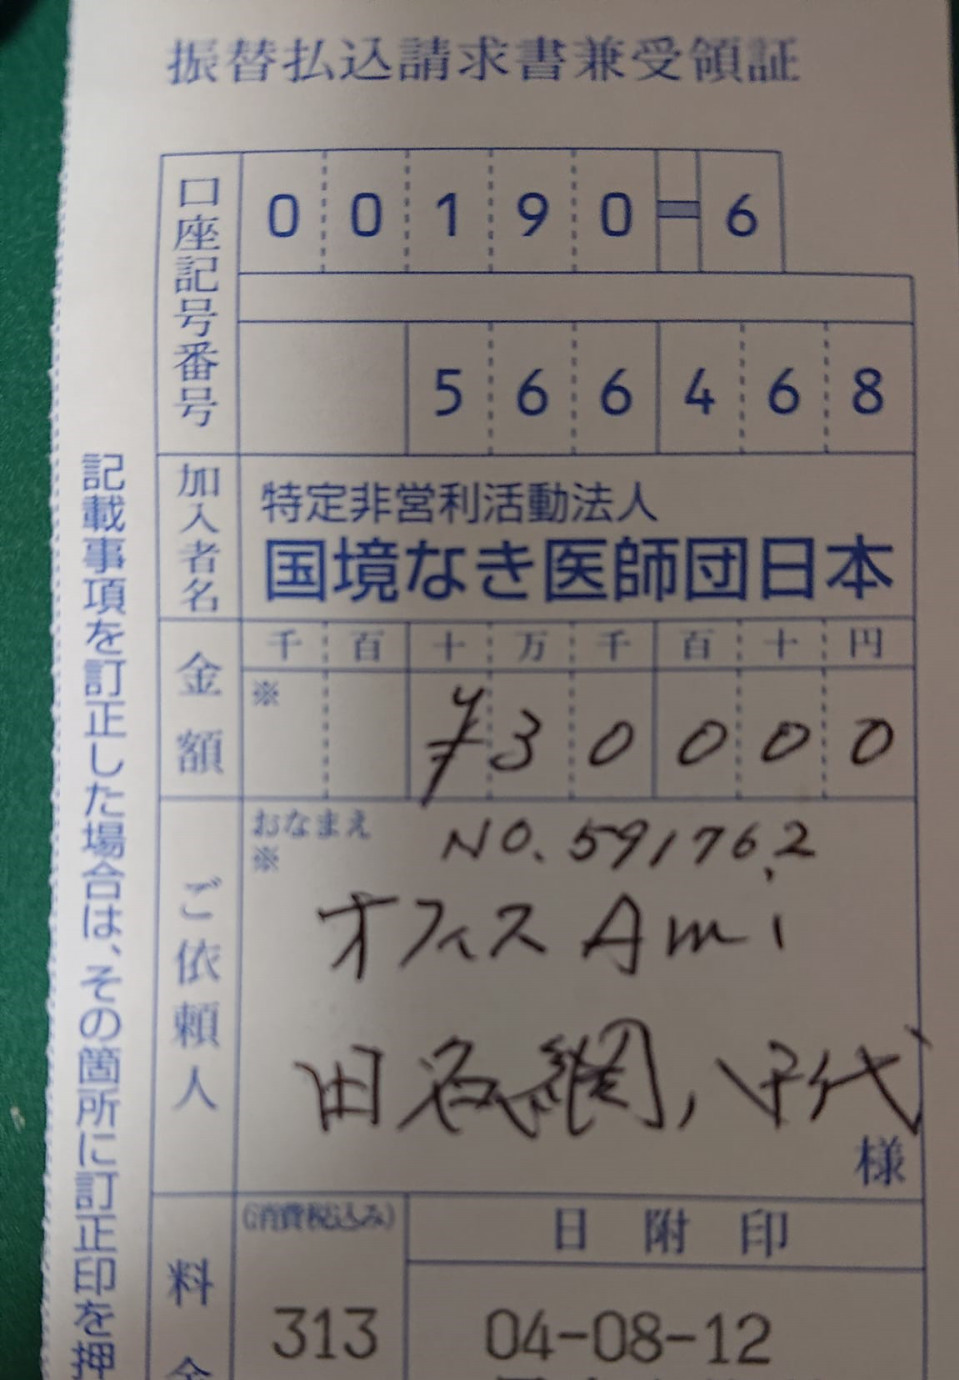 振替払込請求書兼受領証
口座記号番号
00190-6
566468
加入者名
特定非営利活動法人
国境なき医師団日本
金額
千 百 十 万 千 百 十 円
※
¥30000
ご依頼人
おなまえ
※
NO.591762
オフィス Ami
田名網 八千代
様
料金
(消費税込み)
313
日附印
04-08-12
記載事項を訂正した場合は、その箇所に訂正印を押